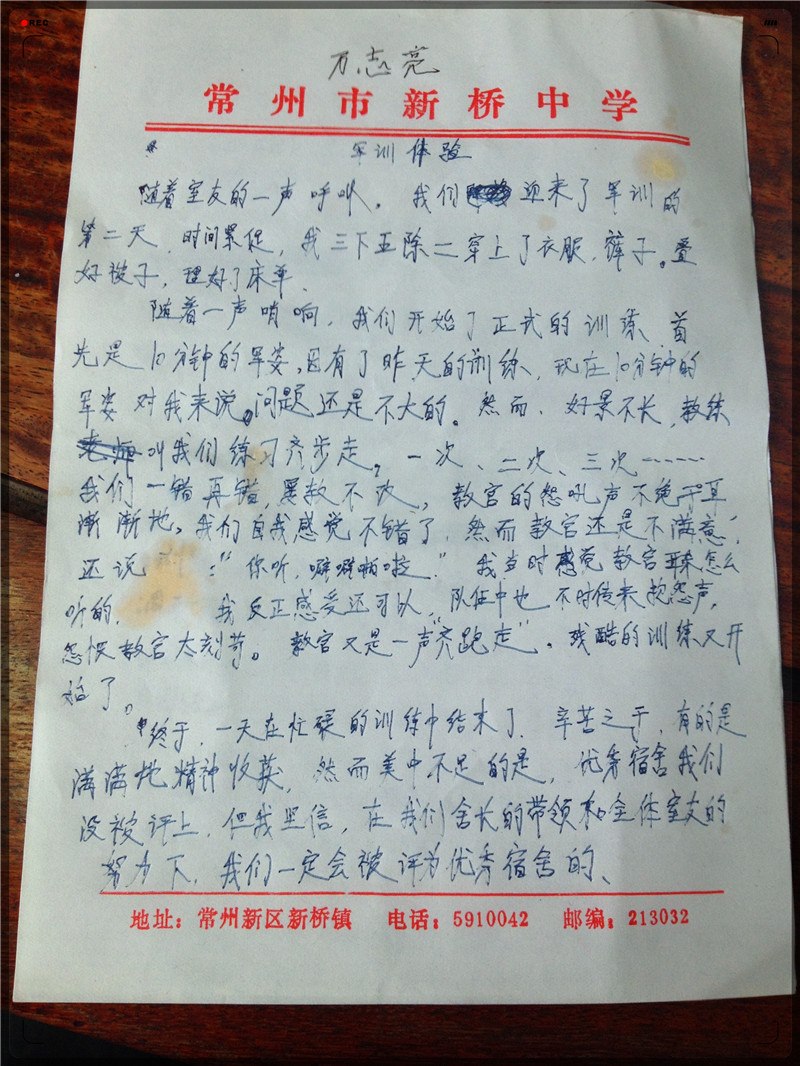 REC
万志亮
常州市新桥中学
军训体验
随着室友的一声呼叫。我们迎来了军训的
第二天,时间紧促,我三下五除二穿上了衣服、裤子。叠
好被子,理好了床单.
随着一声哨响,我们开始了正式的训练、首
先是10分钟的军姿,因有了昨天的训练,现在10分钟的
军姿对我来说,问题还是不大的。然而、好景不长,教练
叫我们练习齐步走。一次、二次、三次……
我们一错再错,屡教不改,教官的怒吼声不绝于耳
渐渐地,我们自我感觉不错了,然而教官还是不满意,
还说:"你听,噼噼啪啦."我当时感觉教官怎么
听的, 我反正感受还可以,队伍中也不时传来抱怨声,
怨恨教官太刻苛。教官又是一声"齐跑走"。残酷的训练又开
始了。
终于,一天在忙碌的训练中结束了,辛苦之于,有的是
满满地精神收获,然而美中不足的是,优秀宿舍我们
没被评上,但我坚信,在我们舍长的带领和全体室友的
努力下,我们一定会被评为优秀宿舍的、
地址:常州新区新桥镇 电话:5910042 邮编:213032